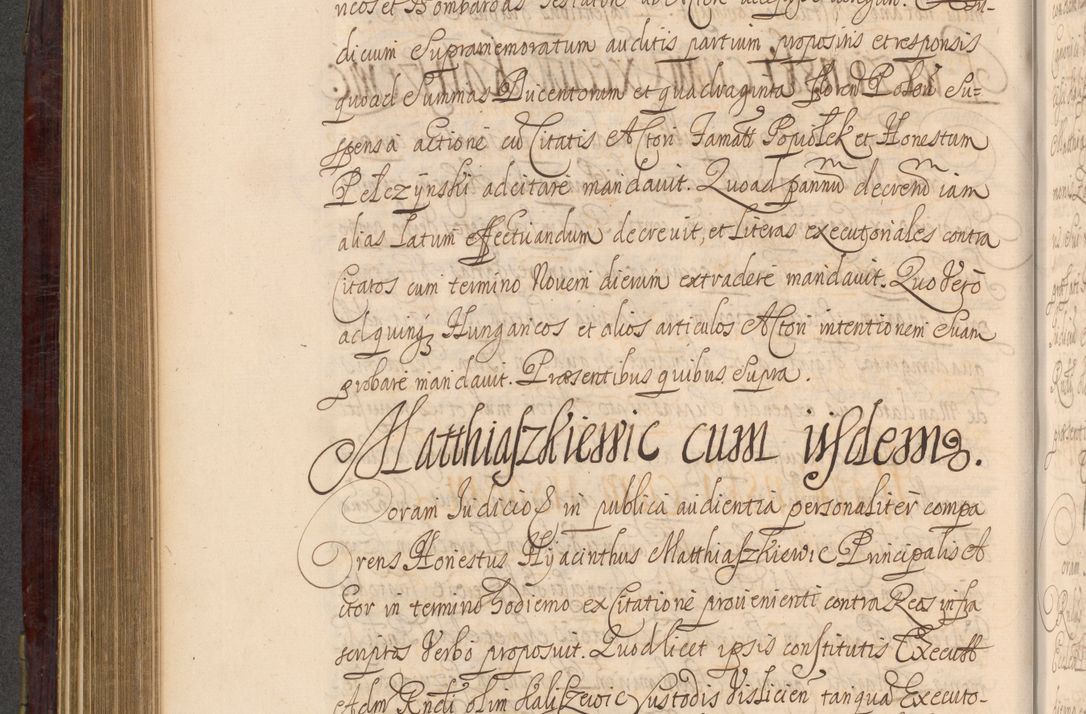 dicium Supramemoratum auditis partium propositis et responsis
quoad Summas Ducentorum et quadraginta floren Polon Su=
spensa actione eû Citatis Acton Famatt Popiołek et Honestum
Pełczynski adcitare mandauit. Quoad pannū decrenđ iam
alias Latum effectuandum decreuit, et Literas executoriales contra
Citatos cum termino Novem dierum extradere mandauit. Quo Vero
ad quinq Hungaricos et alios articulos Actori intentionem Suam
probare mandauit. Præsentibus quibus Supra.
Matthiaszkiewic cum ijsdem.
Coram Judicio in publica audientia personaliter compa
rens Honestus Hyacinthus Matthiaszkiewic Principalis et
ctor in termino hodierno ex Citatione prouenienti contra Reos infra
scriptos Verbo proposuit. Quod licet ipsis constitutis Executt
Adm Rndi olim Kaliszewic Custodis Vislicien tanqua Executo-